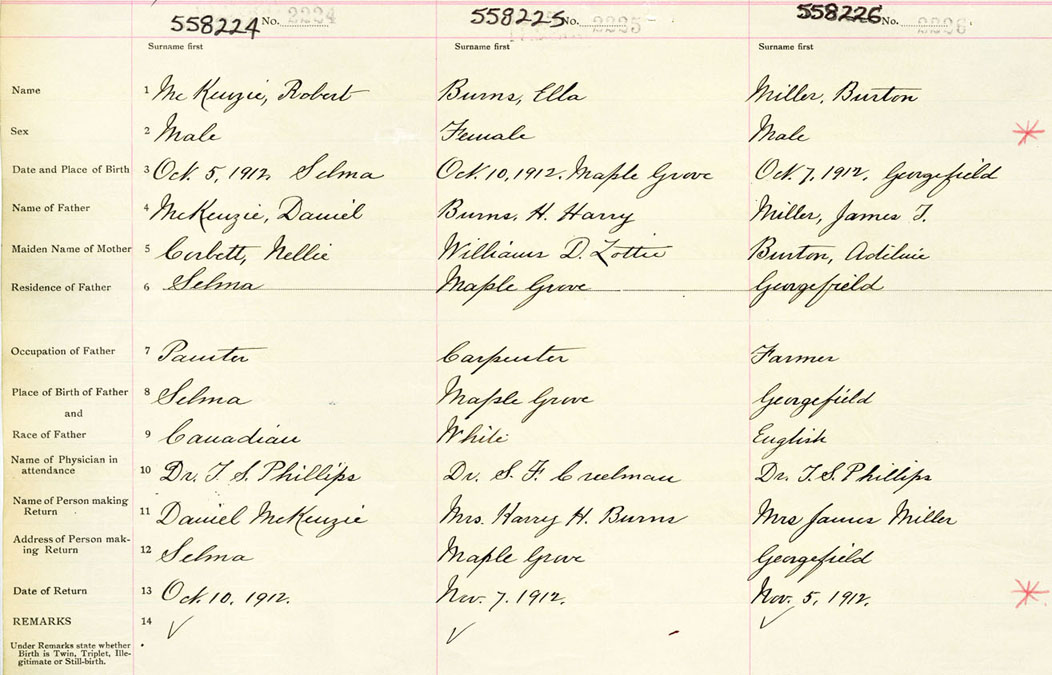 558224 No. 2224 558225 No. 2225 558226 No. 2226
Surname first Surname first Surname first
Name 1 McKenzie, Robert Burns, Ella Miller, Burton
Sex 2 Male Female Male
Date and Place of Birth 3 Oct. 5, 1912, Selma Oct. 10, 1912. Maple Grove Oct. 7, 1912, Georgefield
Name of Father 4 McKenzie, Daniel Burns, H. Harry Miller, James T.
Maiden Name of Mother 5 Corbett, Nellie Williams D. Lottie Burton,
Residence of Father 6 Selma Maple Grove Georgefield
Occupation of Father 7 Painter Carpenter Farmer
Place of Birth of Father 8 Selma Maple Grove Georgefield
and
Race of Father 9 Canadian White English
Name of Physician in
attendance 10 Dr. T. S. Phillips Dr. S. F. Creelman Dr. T. S. Phillips
Name of Person making
Return 11 Daniel McKenzie Mrs. Harry H. Burns Mrs James Miller
Address of Person mak-
ing Return 12 Selma Maple Grove Georgefield
Date of Return 13 Oct. 10, 1912. Nov. 7. 1912. Nov. 5, 1912.
REMARKS 14
Under Remarks state whether
Birth is Twin, Triplet, Ille-
gitimate or Still-birth.